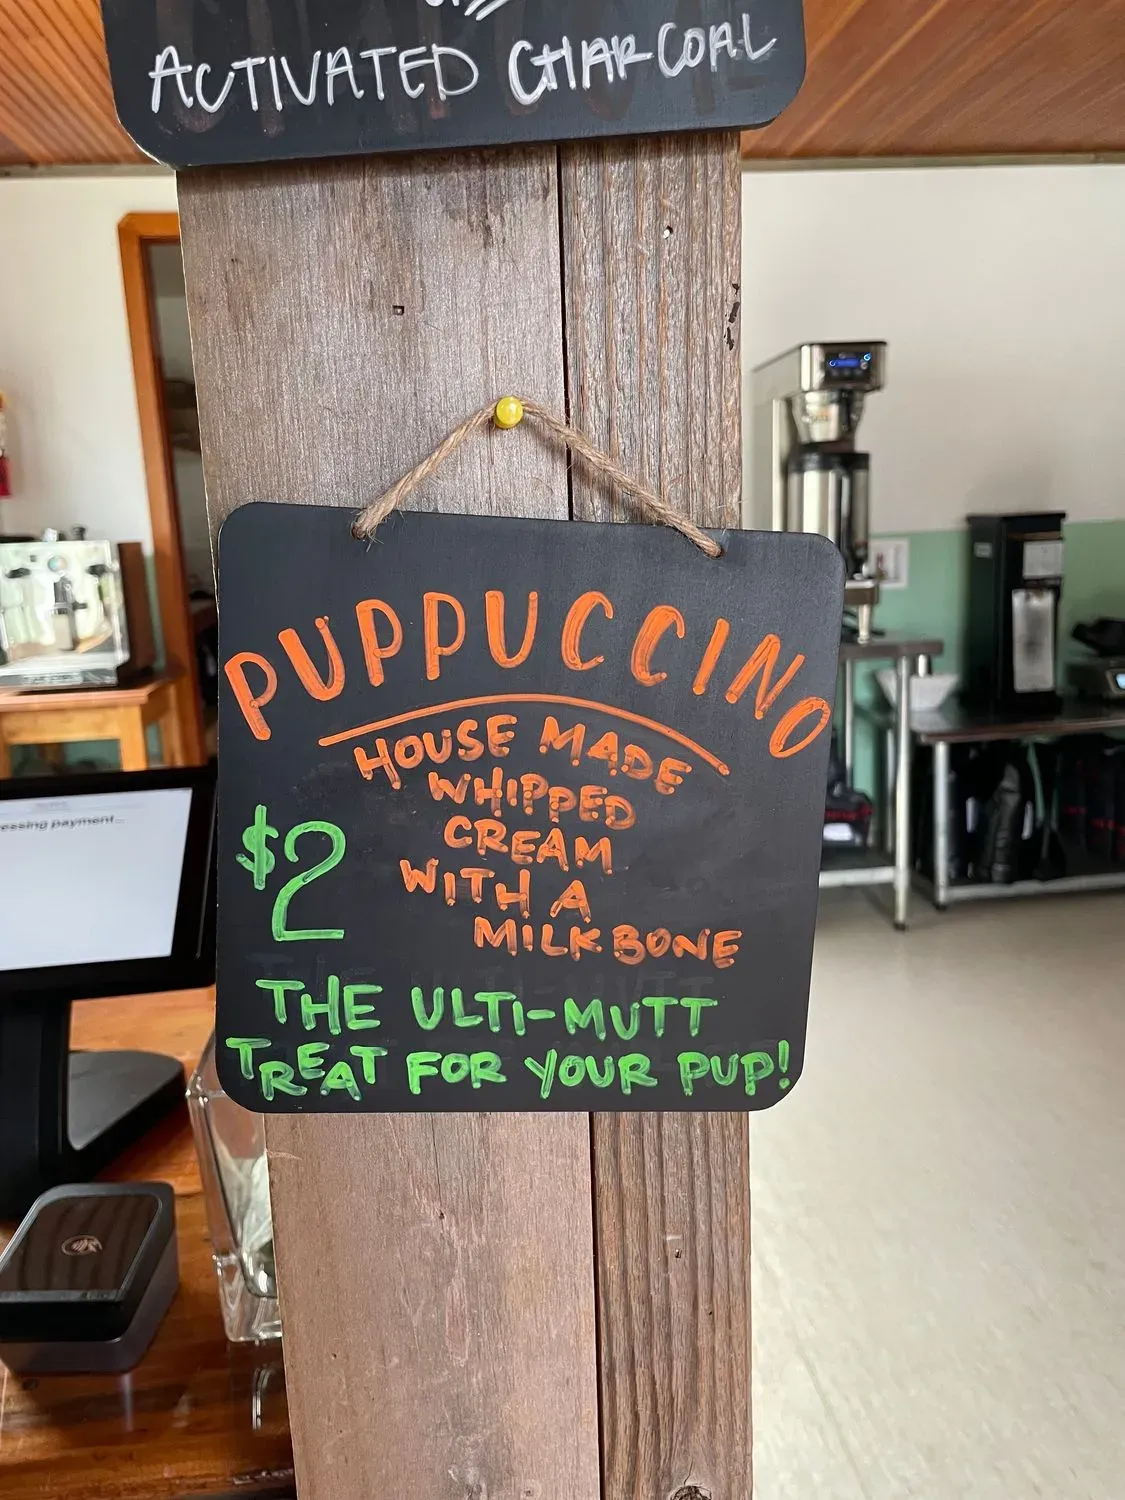 ACTIVATED CHARCOAL
PUPPUCCINO
HOUSE MADE
WHIPPED
CREAM
WITH A
MILKBONE
$2
THE ULTI-MUTT
TREAT FOR YOUR PUP!
essing payment...